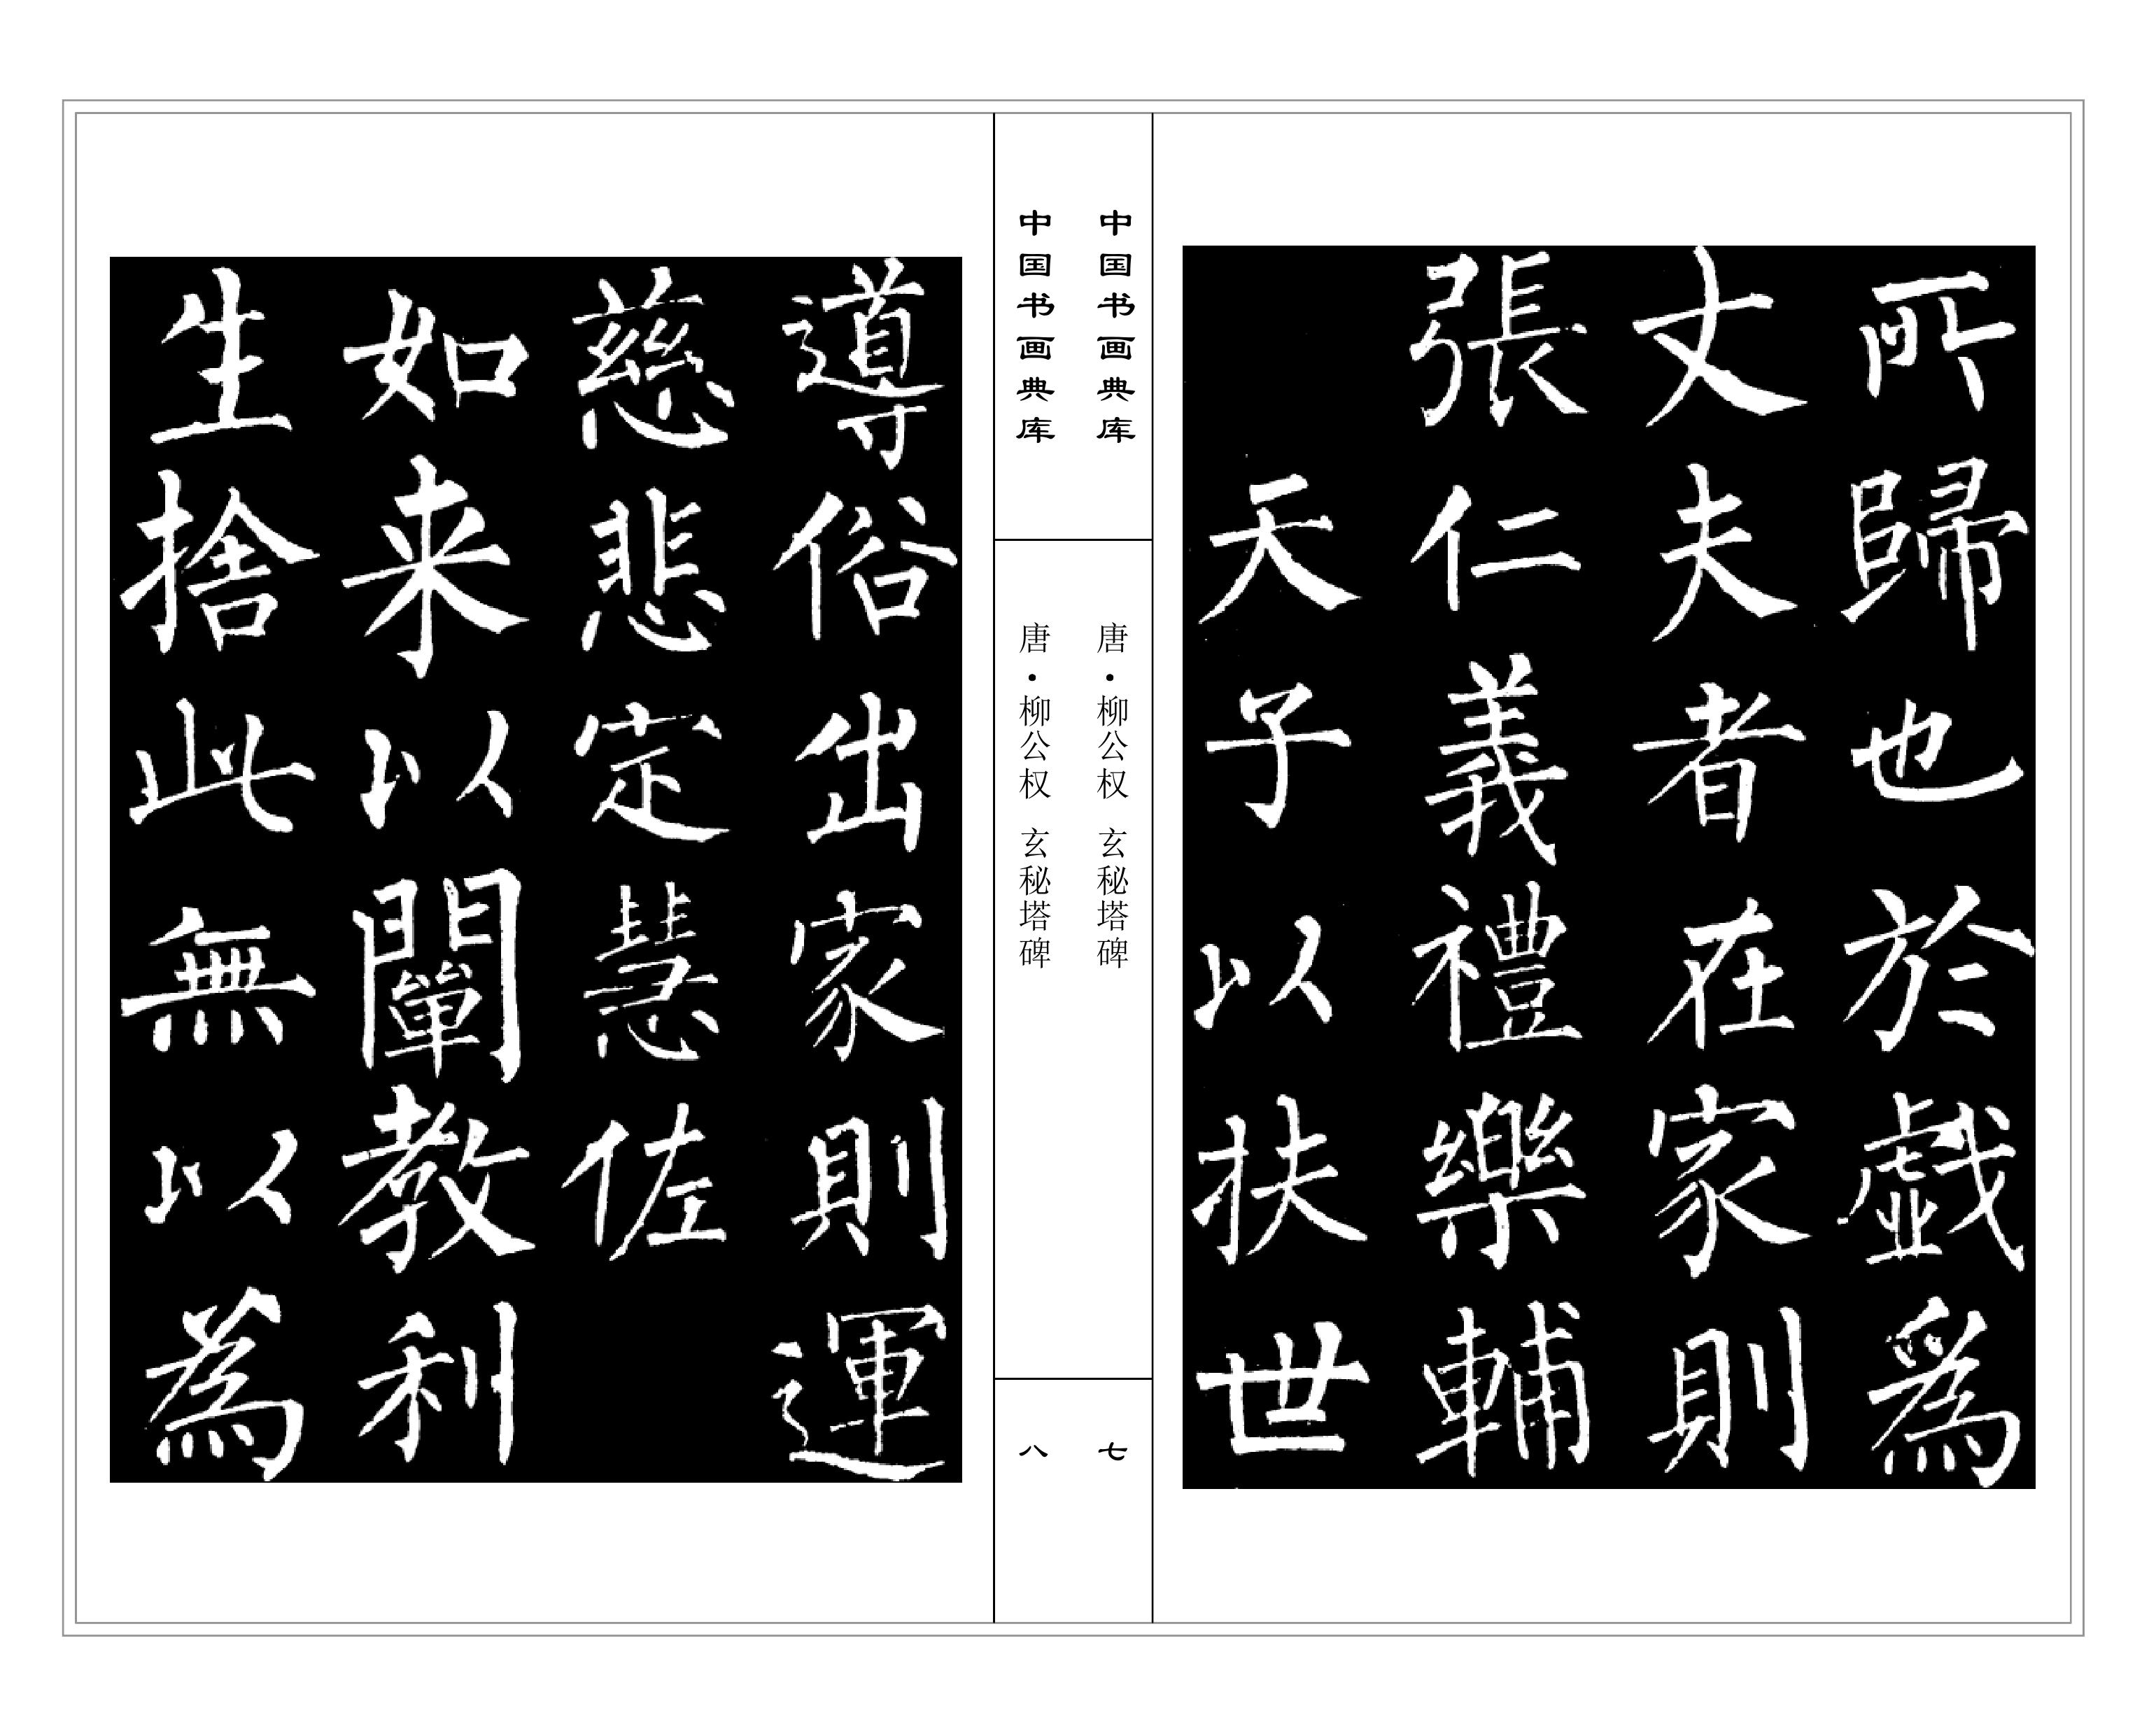 所歸也於戲為
丈夫者在家則
張仁義禮樂輔
天子以扶世
中国书画典库
唐·柳公权 玄秘塔碑
七
中国书画典库
唐·柳公权 玄秘塔碑
八
導俗出家則運
慈悲定慧佐
如来以闡教利
生捨此無以為